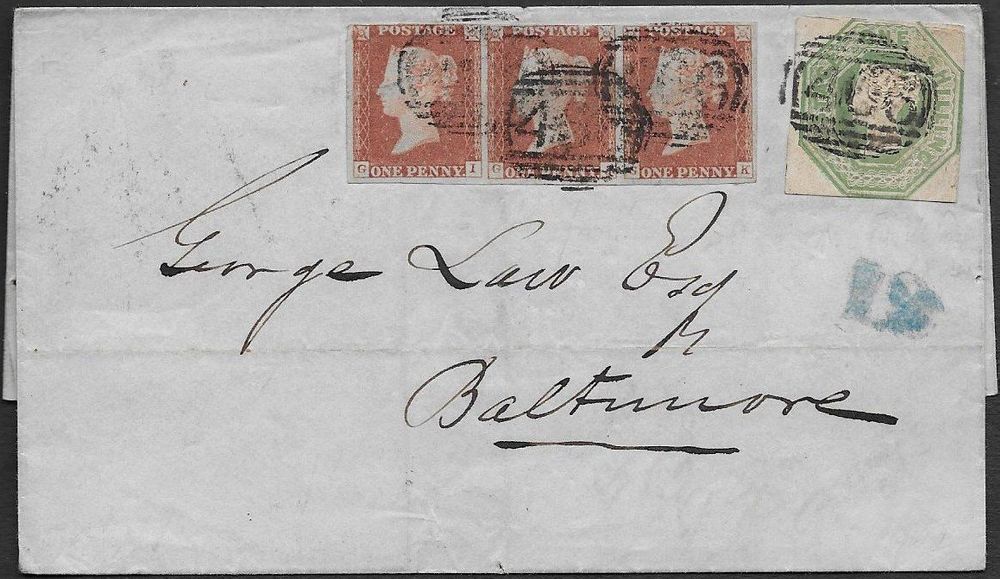 POSTAGE POSTAGE POSTAGE
G ONE PENNY I G ONE PENNY G ONE PENNY K
ONE SHILLING
George Law Esq
Baltimore